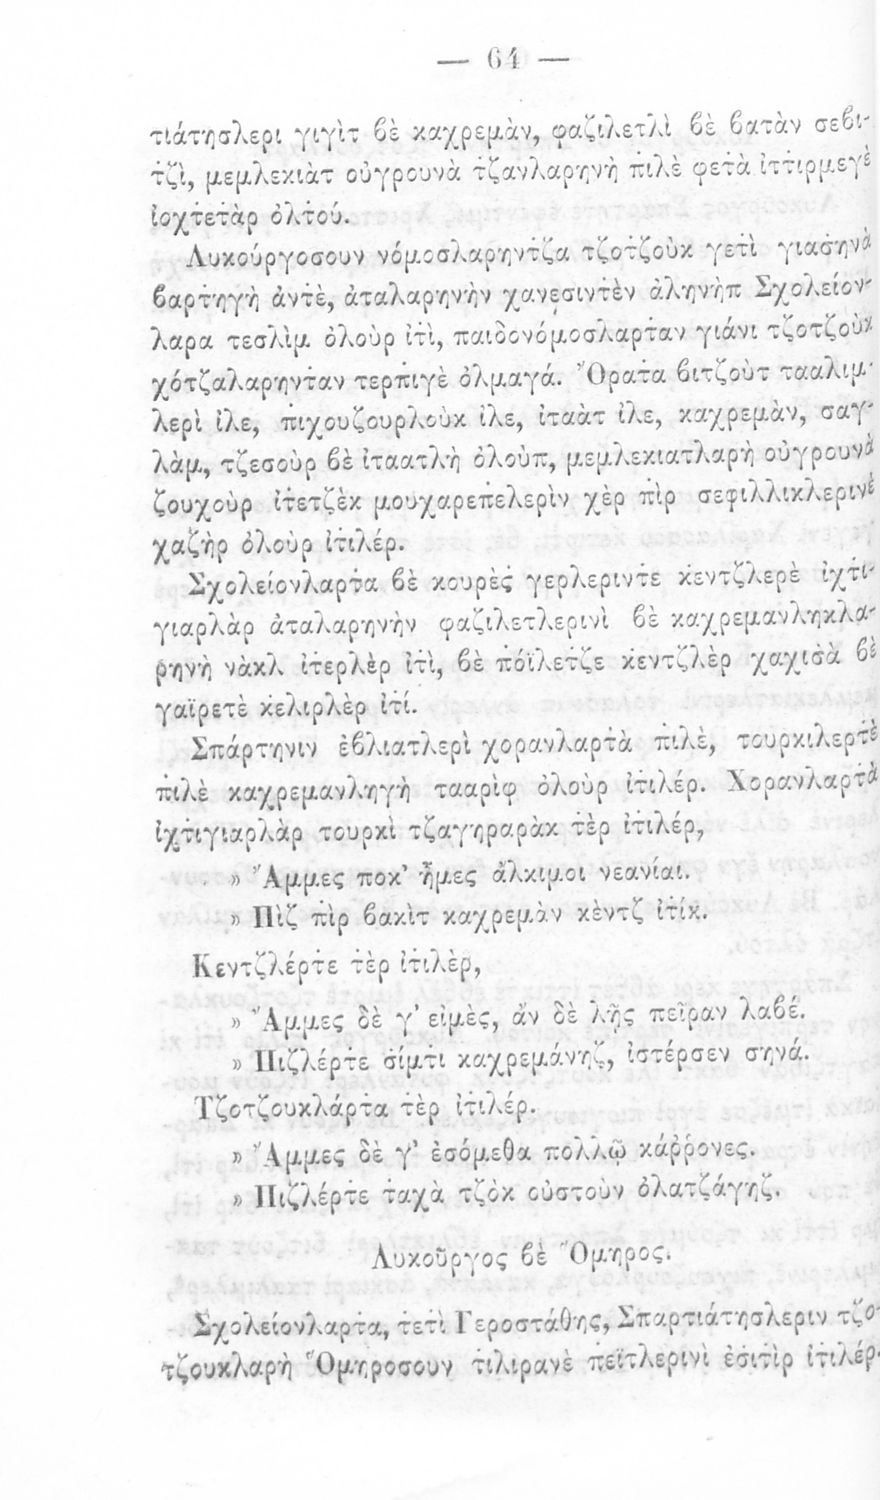 — 64 —
τιάτησλερι γιγὶτ βὲ καχρεμὰν, φαζιλετλὶ βὲ βατὰν σεβι-
τζὶ, μεμλεκιὰτ οὐγρουνὰ τ̇ζανλαρηνὴ π̇ιλὲ φετ̇ὰ ἰτ̇τ̇ιρμεγὲ
ἰοχτ̇ετ̇ὰρ ὀλτ̇ού.
Λυκούργοσουν νόμοσλαρηντζα τζοτζοὺκ γετὶ γιασηνὰ
βαρτ̇ηγὴ ἀντὲ, ἀταλαρηνὴν χανεσιντὲν ἀληνὴπ Σχολείον-
λαρα τεσλὶμ ὀλοὺρ ἰτὶ, παιδονόμοσλαρτ̇αν γιάνι τζοτζοὺκ
χότζαλαρηντ̇αν τερπ̇ιγὲ ὀλμαγά. Ὄρατ̇α βιτζοὺτ τααλιμ-
λερὶ ἰλε, π̇ιχουζουρλοὺκ ἰλε, ἰταὰτ ἰλε, καχρεμὰν, σαγ-
λὰμ, τζεσοὺρ βὲ ἰταατλὴ ὀλοὺπ, μεμλεκιατλαρὴ οὐγρουνὰ
ζουχοὺρ ἰτ̇ετζὲκ μουχαρεπ̇ελερὶν χὲρ π̇ὶρ σεφιλλικλερινὲ
χαζὴρ ὀλοὺρ ἰτ̇ιλέρ.
Σχολείονλαρτ̇α βὲ κουρὲς γερλεριντ̇ε κ̇εντζλερὲ ἰχτι-
γιαρλὰρ ἀταλαρηνὴν φαζιλετλερινὶ βὲ καχρεμανληκλα-
ρηνὴ νὰκλ ἰτ̇ερλὲρ ἰτὶ, βὲ π̇όϊλετζε κ̇εντζλὲρ χαχισὰ βὲ
γαϊρετὲ κ̇ελιρλὲρ ἰτί.
Σπάρτηνιν ἐβλιατλερὶ χορανλαρτ̇ὰ π̇ιλὲ, τουρκιλερτ̇ὲ
π̇ιλὲ καχρεμανληγὴ τααρὶφ ὀλοὺρ ἰτ̇ιλέρ. Χορανλαρτ̇ὰ
ἰχτιγιαρλὰρ τουρκὶ τζαγηραρὰκ τ̇ὲρ ἰτ̇ιλέρ,
» Ἄμμες ποκ’ ἦμες ἄλκιμοι νεανίαι.
» Π̇ὶζ π̇ὶρ βακὶτ καχρεμὰν κὲντζ ἰτ̇ίκ.
Κεντζλέρτ̇ε τ̇ὲρ ἰτ̇ιλὲρ,
» Ἄμμες δὲ γ’ εἰμὲς, ἂν δὲ λῇς πεῖραν λαβέ.
» Π̇ιζλέρτ̇ε σίμτ̇ι καχρεμάνηζ, ἰστέρσεν σηνά.
Τζοτζουκλάρτ̇α τ̇ὲρ ἰτ̇ιλέρ.
» Ἄμμες δὲ γ’ ἐσόμεθα πολλῷ κάῤῥονες.
» Π̇ιζλέρτ̇ε τ̇αχὰ τζὸκ οὐστοὺν ὀλατζάγηζ.
Λυκοῦργος βὲ Ὅμηρος.
Σχολείονλαρτ̇α, τ̇ετὶ Γεροστάθης, Σπαρτιάτησλεριν τζο-
τζουκλαρὴ Ὁμήροσουν τ̇ιλιρανὲ π̇εϊτλερινὶ ἐσιτ̇ὶρ ἰτ̇ιλέρ.